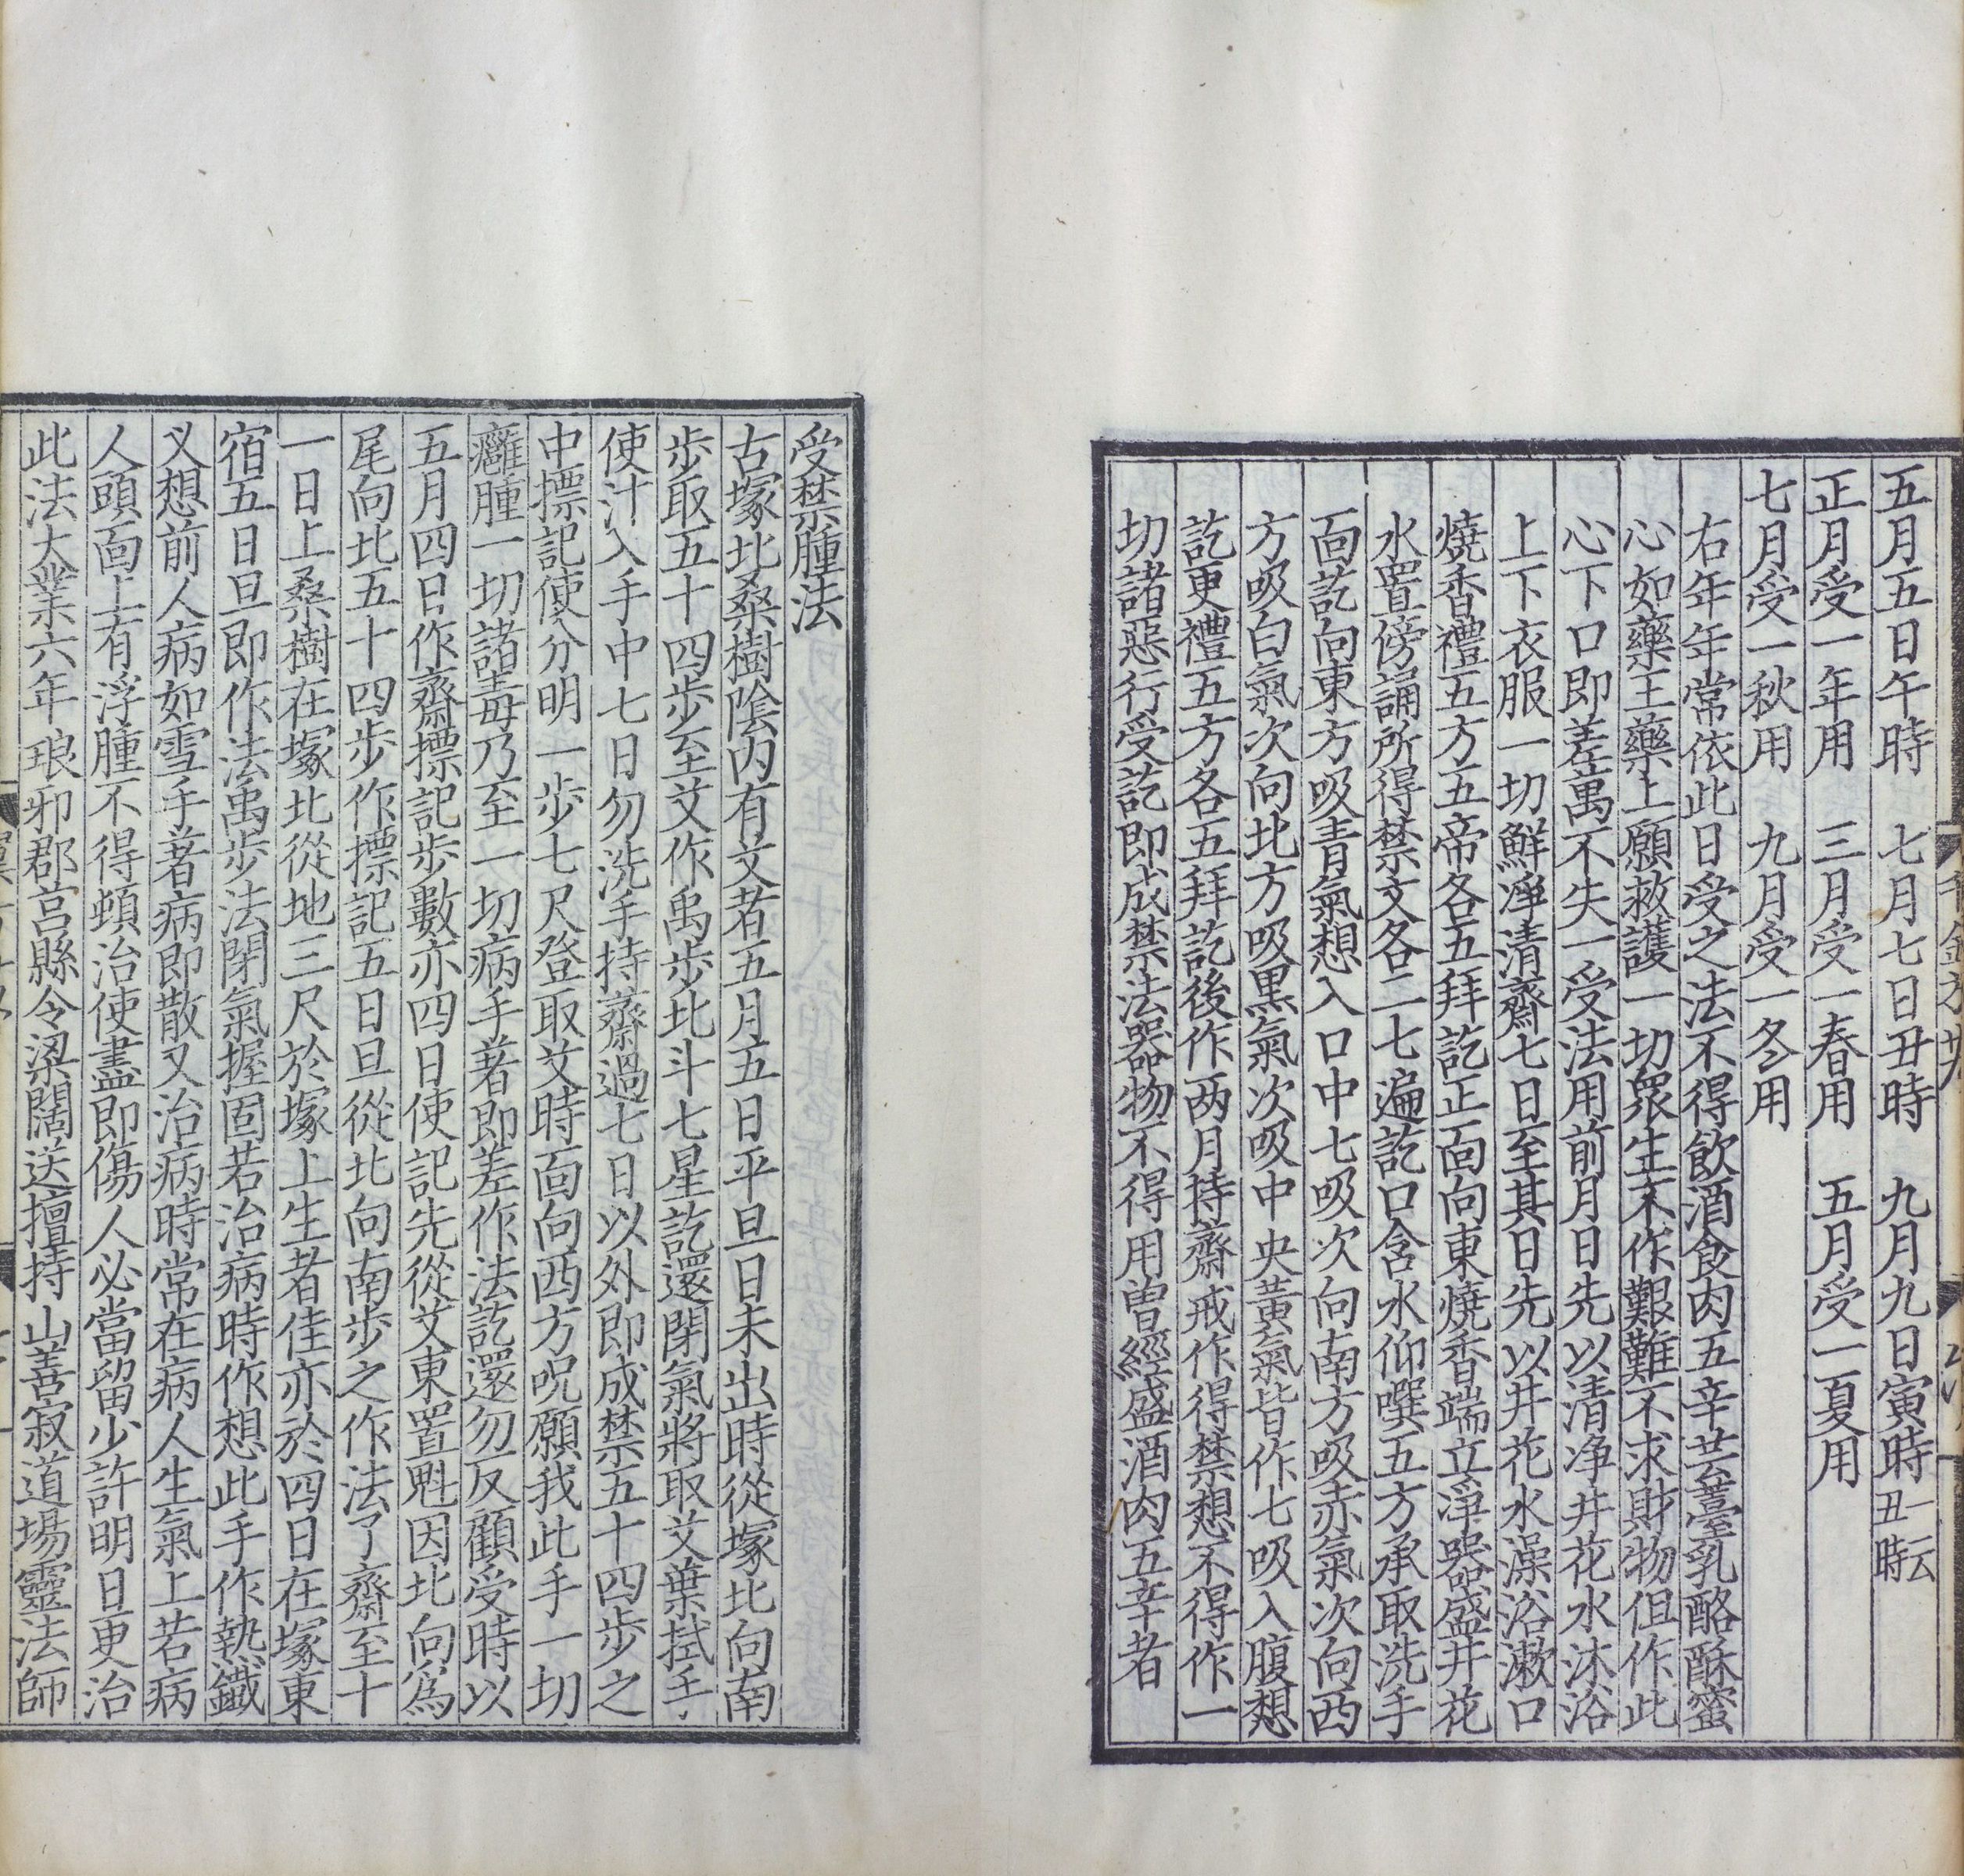 五月五日午時　七月七日丑時　九月九日寅時一云丑時
正月受一年用　三月受一春用　五月受一夏用
七月受一秋用　九月受一冬用
右年年常依此日受之法不得飲酒食肉五辛芸薹乳酪酥蜜
心如藥王藥上願救護一切衆生不作艱難不求財物但作此
心下口即差萬不失一受法用前月日先以清净井花水沐浴
上下衣服一切鮮淨清齋七日至其日先以井花水澡浴漱口
燒香禮五方五帝各五拜訖正面向東燒香端立淨器盛井花
水置傍誦所得禁文各二七遍訖口含水仰噀五方承取洗手
面訖向東方吸青氣想入口中七吸次向南方吸赤氣次向西
方吸白氣次向北方吸黒氣次吸中央黃氣皆作七吸入腹想
訖更禮五方各五拜訖後作两月持齋戒作得禁想不得作一
切諸惡行受訖即成禁法器物不得用曽經盛酒肉五辛者
受禁腫法
古塚北桑樹陰内有艾者五月五日平旦日未出時從塚北向南
步取五十四步至艾作禹步北斗七星訖還閉氣將取艾葉拭手
使汁入手中七日勿洗手持齋過七日以外即成禁五十四步之
中摽記使分明一步七尺登取艾時面向西方呪願我此手一切
癰腫一切諸毒乃至一切病手著即差作法訖還勿反顧受時以
五月四日作齋摽記步數亦四日使記先從艾東置魁因北向爲
尾向北五十四步作摽記五日旦從北向南步之作法了齋至十
一日上桑樹在塚北從地三尺於塚上生者佳亦於四日在塚東
宿五日旦即作法禹步法閉氣握固若治病時作想此手作熱鐵
叉想前人病如雪手著病即散又治病時常在病人生氣上若病
人頭面上有浮腫不得頓治使盡即傷人必當留少許明日更治
此法大業六年琅邪郡莒縣令梁闊送擅持山善寂道場靈法師